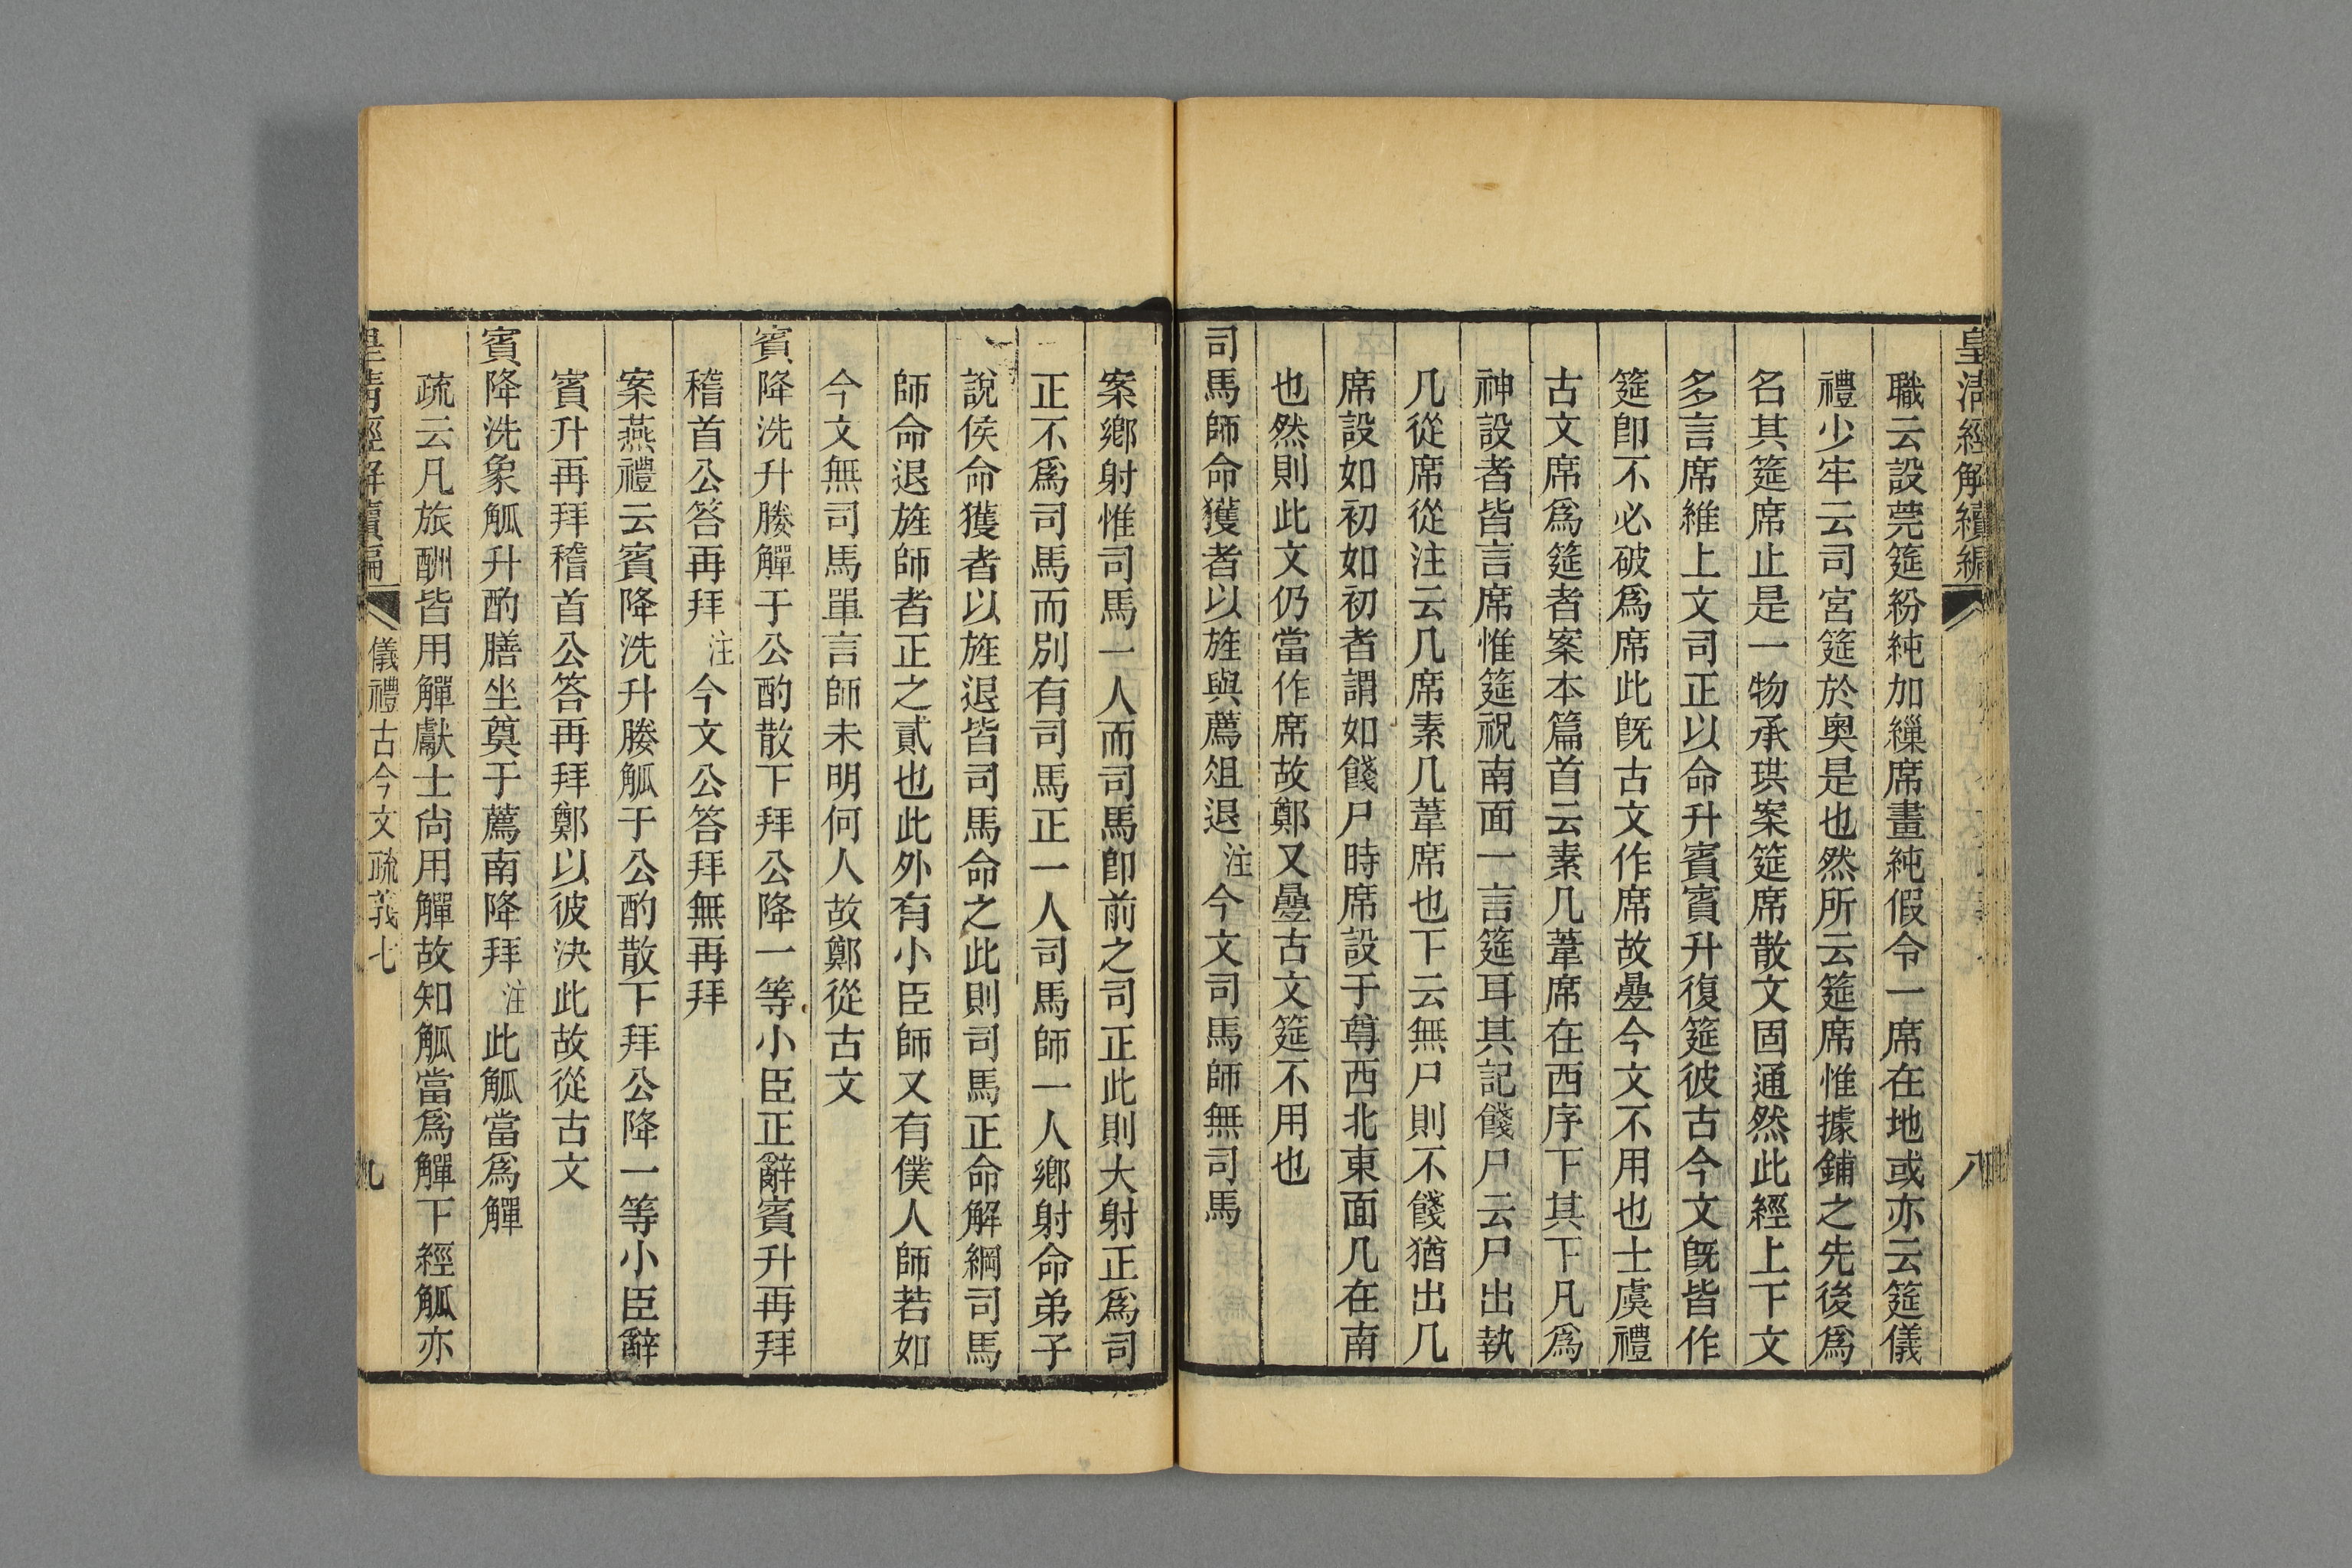 皇清經解續編
八
職云設莞筵紛純加繅席畫純假令一席在地或亦云筵儀
禮少牢云司宮筵於奧是也然所云筵席惟據鋪之先後爲
名其筵席止是一物承珙案筵席散文固通然此經上下文
多言席維上文司正以命升賓賓升復筵彼古今文旣皆作
筵卽不必破爲席此旣古文作席故曡今文不用也士虞禮
古文席爲筵者案本篇首云素几葦席在西序下其下凡爲
神設者皆言席惟筵祝南面一言筵耳其記餞尸云尸出執
几從席從注云几席素几葦席也下云無尸則不餞猶出几
席設如初如初者謂如餞尸時席設于尊西北東面几在南
也然則此文仍當作席故鄭又曡古文筵不用也
司馬師命獲者以旌與薦俎退注今文司馬師無司馬
案鄉射惟司馬一人而司馬卽前之司正此則大射正爲司
正不爲司馬而別有司馬正一人司馬師一人鄉射命弟子
說侯命獲者以旌退皆司馬命之此則司馬正命解綱司馬
師命退旌師者正之貳也此外有小臣師又有僕人師若如
今文無司馬單言師未明何人故鄭從古文
賓降洗升媵觶于公酌散下拜公降一等小臣正辭賓升再拜
稽首公答再拜注今文公答拜無再拜
案燕禮云賓降洗升媵觚于公酌散下拜公降一等小臣辭
賓升再拜稽首公答再拜鄭以彼決此故從古文
賓降洗象觚升酌膳坐奠于薦南降拜注此觚當爲觶
疏云凡旅酬皆用觶獻士尙用觶故知觚當爲觶下經觚亦
皇清經解續編
儀禮古今文疏義七
九